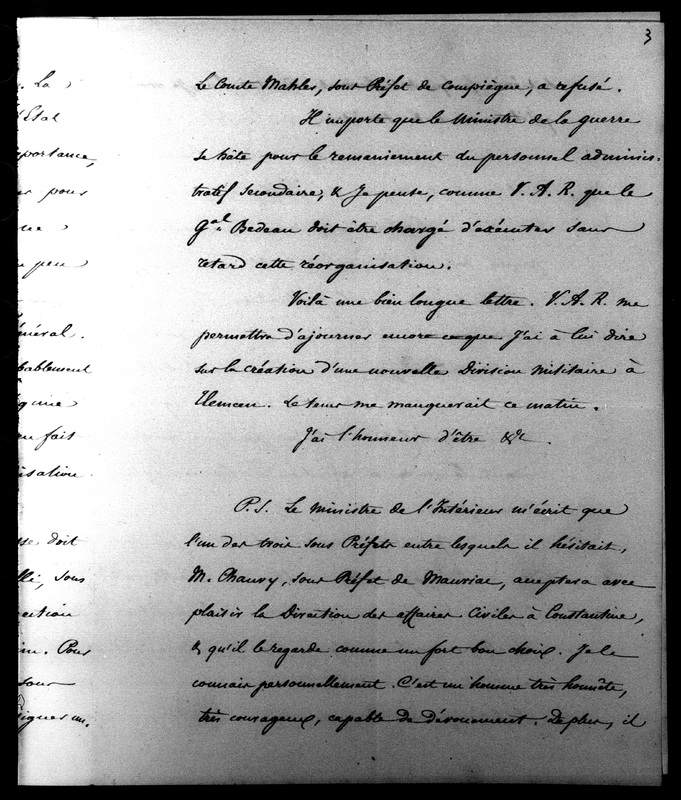 3
. La
Le Comte Mahler, sous Préfet de Compiègne, a refusé.
l'Etat
Il importe que le Ministre de la guerre
portance,
se hâte pour le remaniement du personnel adminis-
pour
tratif secondaire, & Je pense, comme V. A. R. que le
Gal Bedeau doit être chargé d'exécuter sans
peu
retard cette réorganisation.
Voilà une bien longue lettre. V. A. R. me
énéral.
permettra d'ajourner encore ce que J'ai à lui dire
bablement
sur la création d'une nouvelle Division militaire à
Tlemcen. Le tems me manquerait ce matin.
en fait
J'ai l'honneur d'être &c.
isation
P.S. Le Ministre de l'Intérieur m'écrit que
doit
l'un des trois sous Préfets entre lesquels il hésitait,
, sous
M. Chauvy, sous Préfet de Mauriac, acceptera avec
ection
plaisir la Direction des affaires Civiles à Constantine,
. Pour
& qu'il le regarde comme un fort bon choix. Je le
sous
connais personnellement. C'est un homme très honnête,
igner un.
très courageux, capable de dévouement. De plus, il